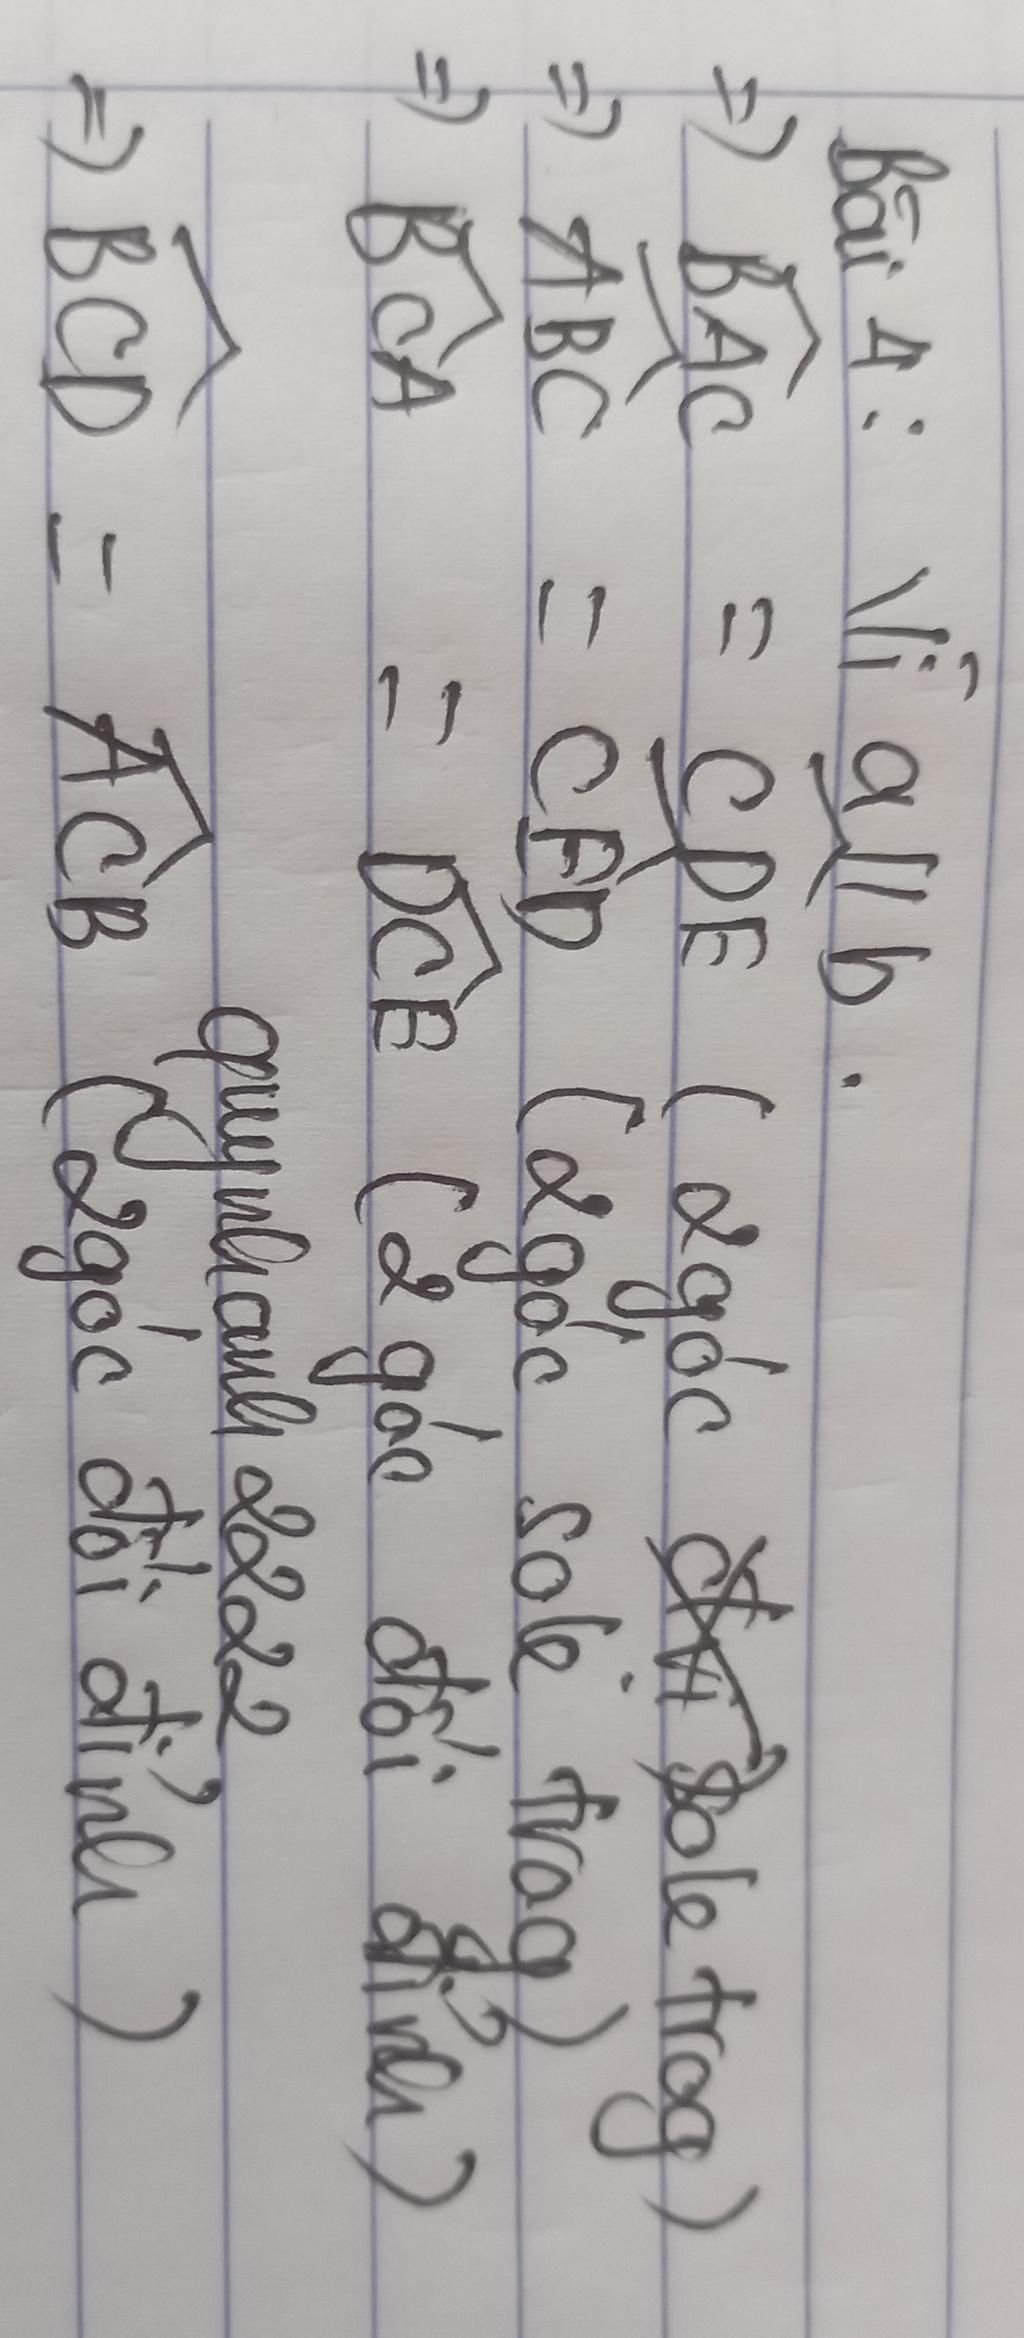 Bài 4: Vì a // b.
=> BAC = CDE (2 góc sole trog)
=> ABC = CED (2 góc sole trog)
=> BCA = DCE (2 góc đối đỉnh)
quynhanh2222
=> BCD = ACB (2 góc đối đỉnh)